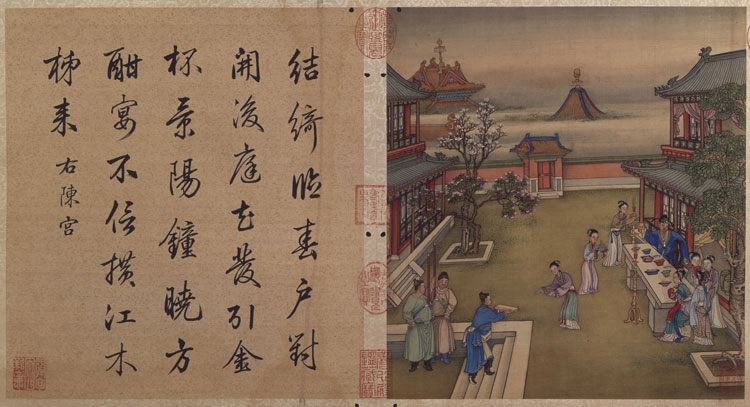 結綺臨春戶對
開後庭花發引金
杯景陽鐘曉方
酣宴不信横江木
柹来 右陳宮